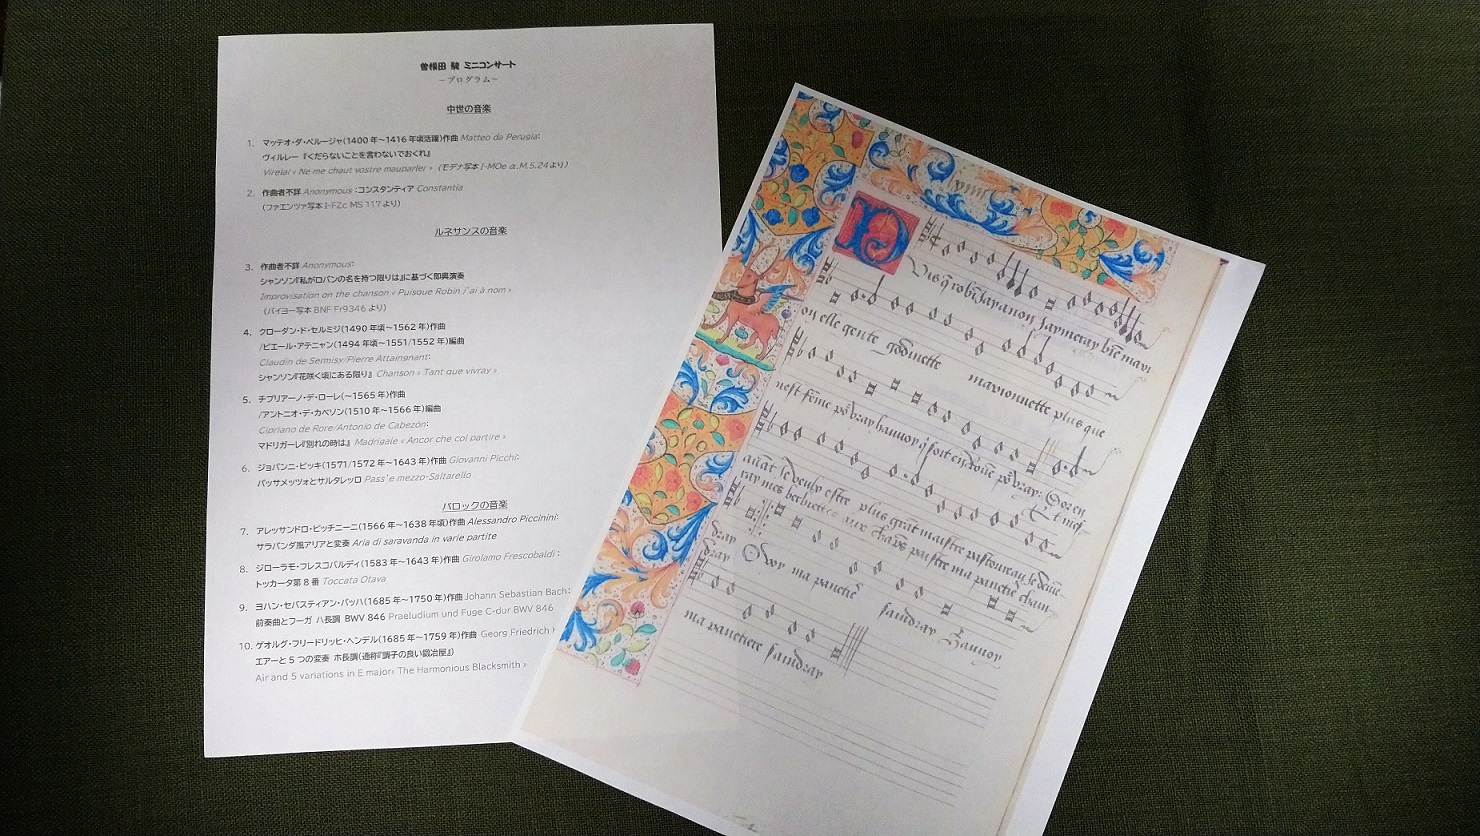 曽根田 駿 ミニコンサート
－プログラム－
中世の音楽
1. マッテオ・ダ・ペルージャ(1400年～1416年頃活躍)作曲 Matteo da Perugia:
ヴィルレー『くだらないことを言わないでおくれ』
Virelai « Ne me chaut vostre mauparler » (モデナ写本 I-MOe α.M.5.24より)
2. 作曲者不詳 Anonymous:コンスタンティア Constantia
(ファエンツァ写本 I-FZc MS 117より)
ルネサンスの音楽
3. 作曲者不詳 Anonymous:
シャンソン『私がロバンの名を持つ限りは』に基づく即興演奏
Improvisation on the chanson « Puisque Robin j'ai à nom »
(バイヨー写本 BNF Fr9346より)
4. クローダン・ド・セルミジ(1490年頃～1562年)作曲
/ピエール・アテニャン(1494年頃～1551/1552年)編曲
Claudin de Sermisy/Pierre Attaingnant:
シャンソン『花咲く頃にある限り』 Chanson « Tant que vivray »
5. チプリアーノ・デ・ローレ(～1565年)作曲
/アントニオ・デ・カベソン(1510年～1566年)編曲
Cipriano de Rore/Antonio de Cabezón:
マドリガーレ『別れの時は』 Madrigale « Ancor che col partire »
6. ジョバンニ・ピッキ(1571/1572年～1643年)作曲 Giovanni Picchi:
パッサメッツォとサルタレッロ Pass'e mezzo-Saltarello
バロックの音楽
7. アレッサンドロ・ピッチニーニ(1566年～1638年頃)作曲 Alessandro Piccinini:
サラバンダ風アリアと変奏 Aria di saravanda in varie partite
8. ジローラモ・フレスコバルディ(1583年～1643年)作曲 Girolamo Frescobaldi :
トッカータ第8番 Toccata Otava
9. ヨハン・セバスティアン・バッハ(1685年～1750年)作曲 Johann Sebastian Bach:
前奏曲とフーガ ハ長調 BWV 846 Praeludium und Fuge C-dur BWV 846
10. ゲオルグ・フリードリッヒ・ヘンデル(1685年～1759年)作曲 Georg Friedrich
エアーと5つの変奏 ホ長調(通称『調子の良い鍛冶屋』)
Air and 5 variations in E major‹ The Harmonious Blacksmith »
on elle gente godinette marionnette plus que
ma panetiere sandray